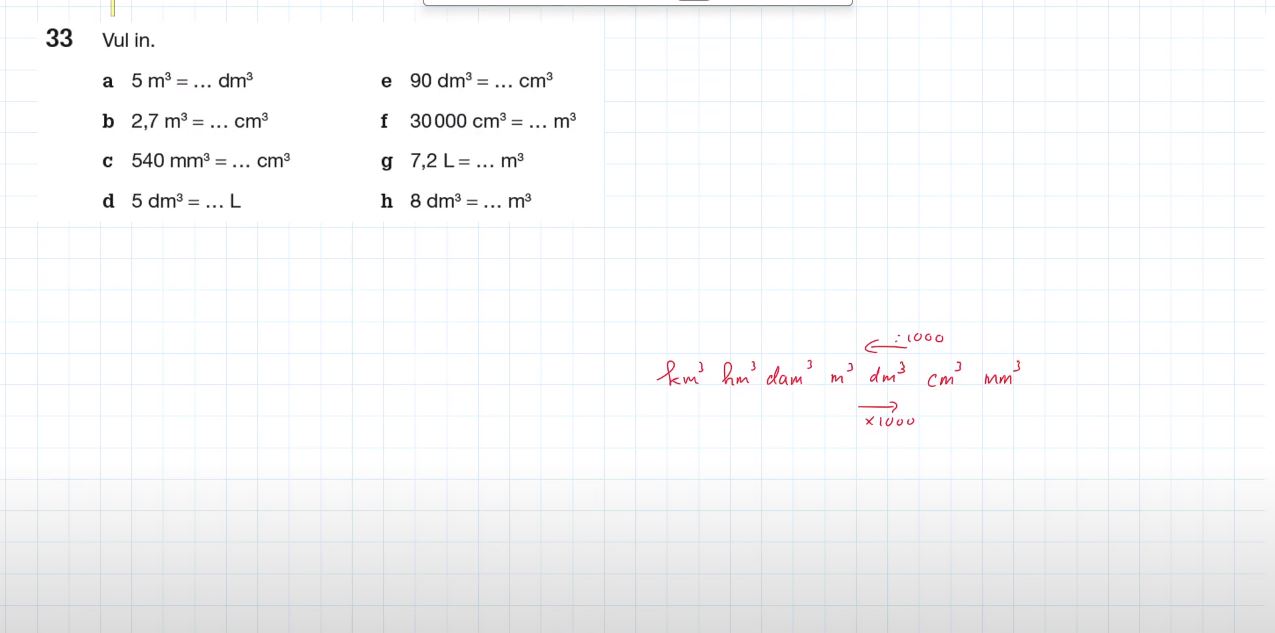 33 Vul in.
a 5 m³ = ... dm³
b 2,7 m³ = ... cm³
c 540 mm³ = ... cm³
d 5 dm³ = ... L
e 90 dm³ = ... cm³
f 30 000 cm³ = ... m³
g 7,2 L = ... m³
h 8 dm³ = ... m³
← : 1000
km³ hm³ dam³ m³ dm³ cm³ mm³
→
×1000